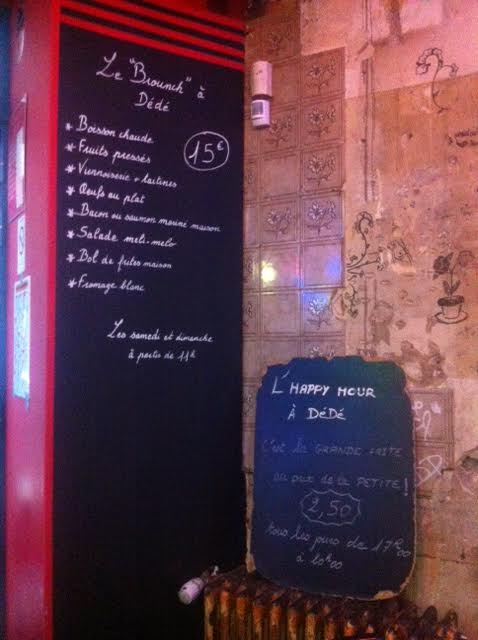 Le "Brounch" à
Dédé
15€
* Boisson chaude
* Fruits pressés
* Viennoiserie + tartines
* Œufs au plat
* Bacon ou saumon mariné maison
* Salade meli-melo
* Bol de frites maison
* Fromage blanc
Les samedi et dimanche
à partir de 11h
L'HAPPY HOUR
À DéDé
C'est la GRANDE
au prix de la PETITE!
2,50
tous les jours de 17h00
à 20h00